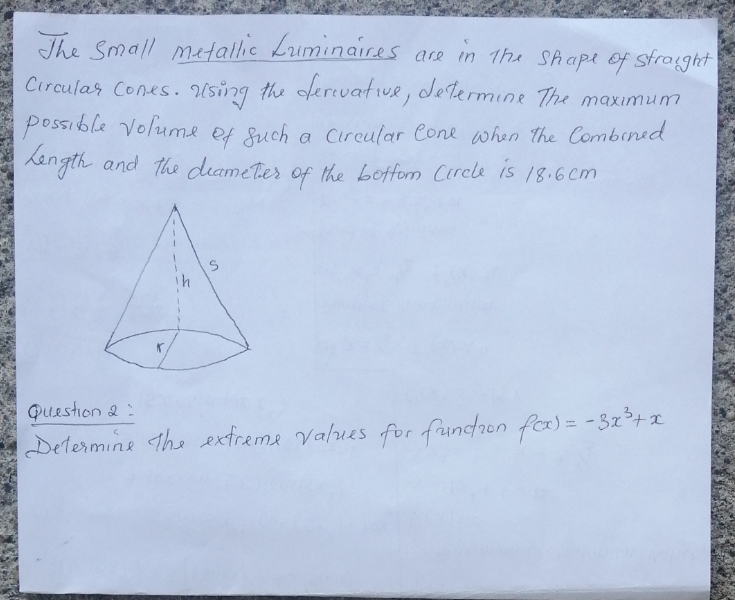 The Small metallic Luminaires are in the shape of straight
Circular Cones. Using the derivative, determine The maximum
possible volume of such a circular Cone when the Combined
Length and the diameter of the bottom Circle is 18.6cm
s
h
r
Question 2:
Determine the extreme values for function f(x) = -3x³+x